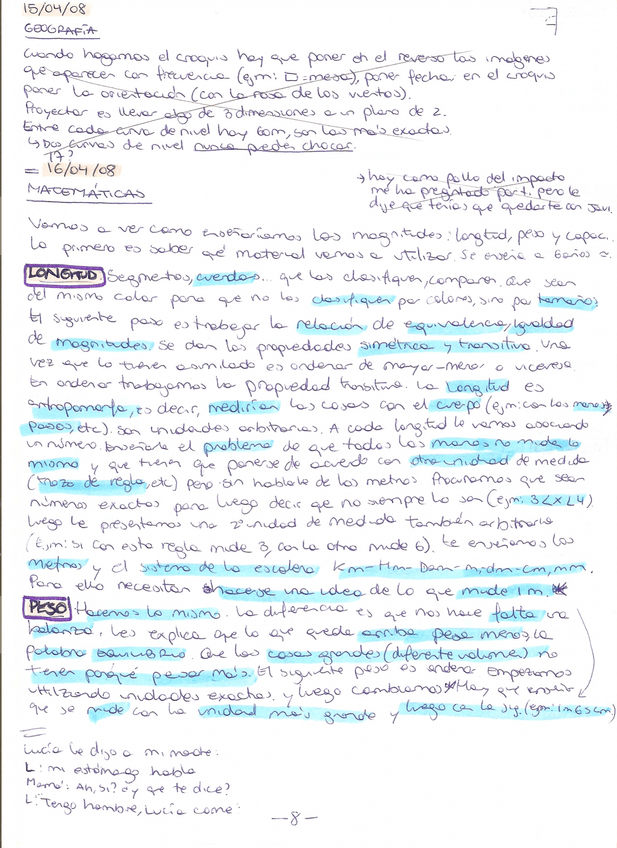 15/04/08
GEOGRAFÍA
Cuando hagamos el croquis hay que poner en el reverso las imágenes
que aparecen con frecuencia (ejm: □=mesa), poner fecha en el croquis
poner la orientación (con la rosa de los vientos).
Proyectar es llevar algo de 3 dimensiones a un plano de 2.
Entre cada curva de nivel hay 60m, son las más exactas.
↳ Dos curvas de nivel nunca pueden chocar.
17?
= 16/04/08
→ hay como pollo del impacto
me ha preguntado por ti. pero le
dije que tenías que quedarte con Javi.
MATEMÁTICAS
Vamos a ver como enseñaríamos las magnitudes: longitud, peso y capac.
Lo primero es saber qué material vamos a utilizar. Se enseña a 6 años
LONGITUD Segmentos, cuerdas... que las clasifiquen, comparen. Que sean
del mismo color para que no los clasifiquen por colores, sino por tamaños
El siguiente paso es trabajar la relación de equivalencia, igualdad
de magnitudes. Se dan las propiedades simétrica y transitiva. Una
vez que lo tienen asimilado es ordenar de mayor-menor o viceversa.
En ordenar trabajamos la propiedad transitiva. La longitud es
antropomorfa, es decir, medirían las cosas con el cuerpo (ejm: con las manos,
pasos, etc). Son unidades arbitrarias. A cada longitud le vamos asociando
un número. Enseñarle el problema de que todas las manos no mide lo
mismo y que tienen que ponerse de acuerdo con otra unidad de medida
(trozo de regla, etc) pero sin hablarle de los metros. Procuramos que sean
números exactos para luego decir que no siempre lo son (ejm: 3<x<4)
luego le presentamos una 2ª unidad de medida también arbitraria
(Ejm: si con esta regla mide 3, con la otra mide 6). te enseñamos los
metros y el sistema de la escalera Km-Hm-Dam-m-dm-cm, mm.
Para ello necesitan hacerse una idea de lo que mide 1 m.
PESO Hacemos lo mismo. La diferencia es que nos hace falta una
balanza. Les explica que lo que queda arriba pesa menos, la
palabra EQUILIBRIO. Que las cosas grandes (diferente volumen) no
tienen porqué pesar más. El siguiente paso es ordenar. Empezamos
utilizando unidades exactas, y luego cambiamos. Hay que
que se mide con la unidad más grande y luego con la sig. (ejm: 1m 65cm)
Lucía le dijo a mi madre:
L: mi estómago habla
Mamá: Ah, si? ¿y que te dice?
L: Tengo hambre, Lucía come.
-8-